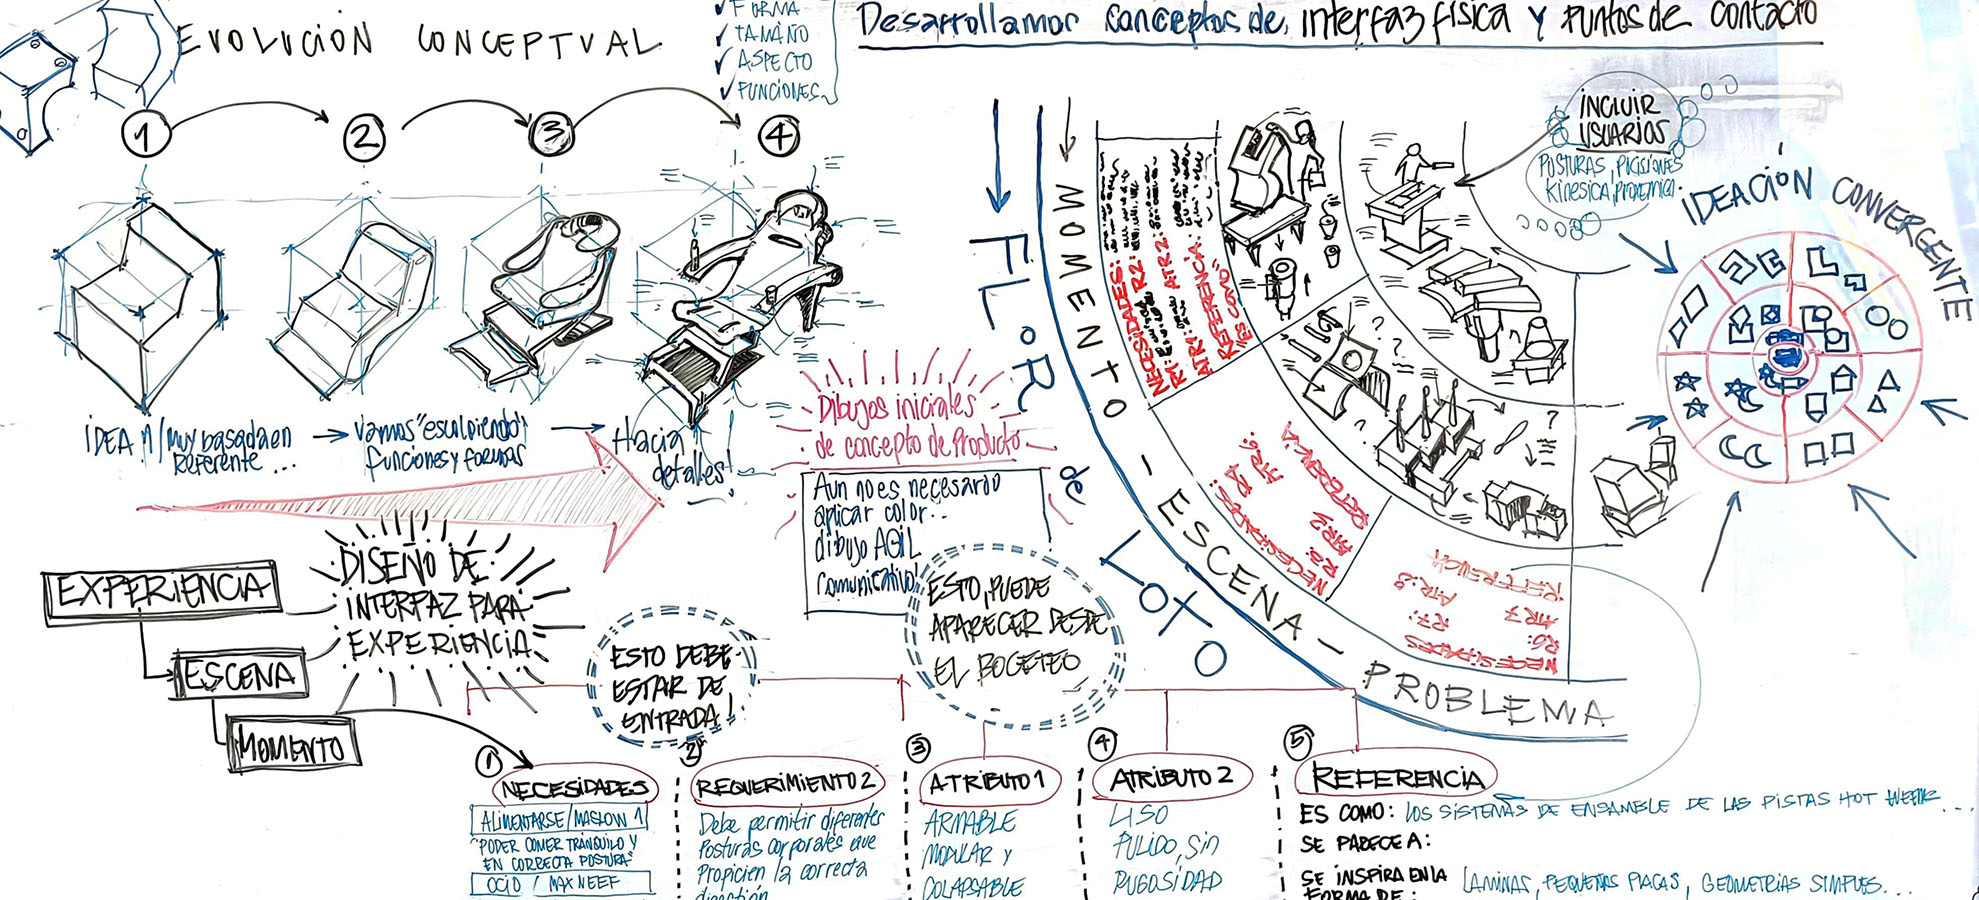 EVOLUCIÓN CONCEPTUAL
✓ FORMA
✓ TAMAÑO
✓ ASPECTO
✓ FUNCIONES
Desarrollamos conceptos de interfaz física y puntos de contacto
1
2
3
4
IDEA 1/muy basada en
Referente...
vamos "esculpiendo"
funciones y formas
Hacia
detalles!
Dibujos iniciales
de concepto de Producto
Aun no es necesario
aplicar color..
dibujo AGIL
comunicativo!
EXPERIENCIA
ESCENA
MOMENTO
DISEÑO DE
INTERFAZ PARA
EXPERIENCIA
ESTO DEBE
ESTAR DE
ENTRADA!
ESTO, PUEDE
APARECER DESDE
EL BOCETEO
FLOR
de
LOTO
MOMENTO - ESCENA - PROBLEMA
NECESIDADES:
R1: R2:
ATR1: ATR2:
REFERENCIA:
"ES COMO"
NECESIDADES
REFERENCIA
NECESIDADES
R6:
R7:
ATR 7
ATR:8
REFERENCIA
INCLUIR
USUARIOS
POSTURAS, PICISIONES
Kinesica, proxemica.
IDEACIÓN CONVERGENTE
1
NECESIDADES
ALIMENTARSE/MASLOW 1
"PODER COMER TRANQUILO Y
EN CORRECTA POSTURA"
OCIO / MAX NEEF
2
REQUERIMIENTO 2
Debe permitir diferentes
Posturas corporales que
Propicien la correcta
digestión
3
ATRIBUTO 1
ARMABLE
MODULAR Y
COLAPSABLE
4
ATRIBUTO 2
LISO
PULIDO, SIN
RUGOSIDAD
5
REFERENCIA
ES COMO: LOS SISTEMAS DE ENSAMBLE DE LAS PISTAS HOT WEELK...
SE PARECE A:
SE INSPIRA EN LA
FORMA DE: LAMINAS, PEQUEÑAS PLACAS, GEOMETRIAS SIMPLES...